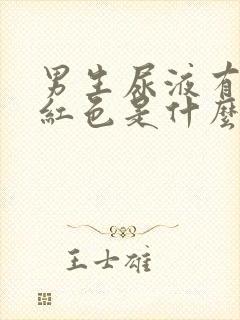 男生尿液有
紅色是什麼
王士雄